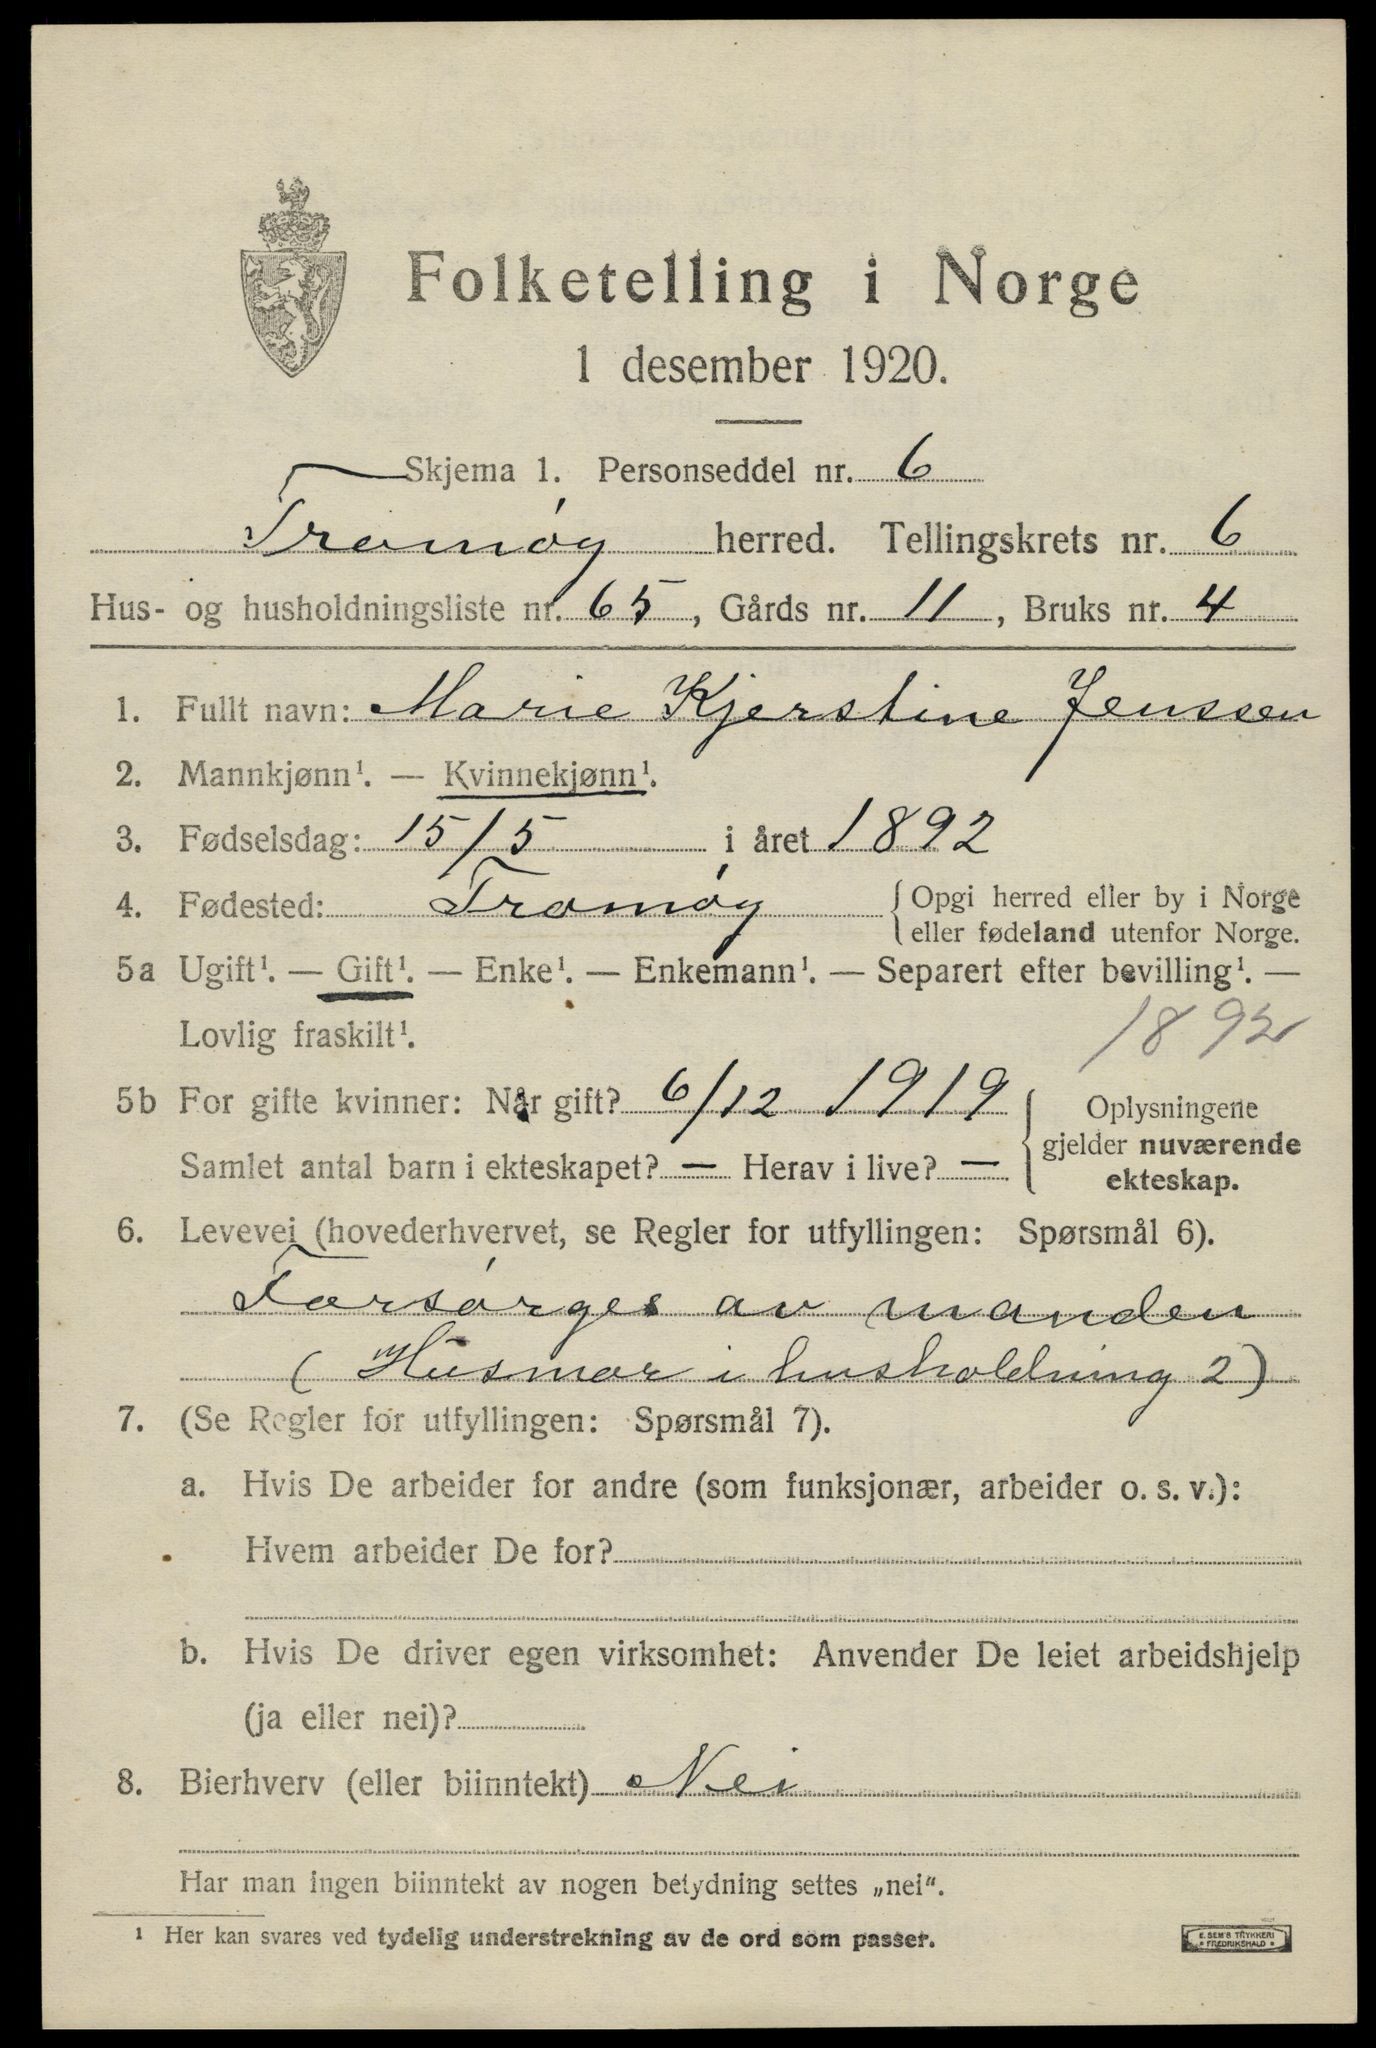 Folketelling i Norge
1 desember 1920.
Skjema 1. Personseddel nr. 6
Tromøy herred. Tellingskrets nr. 6
Hus- og husholdningsliste nr. 65, Gårds nr. 11, Bruks nr. 4
1. Fullt navn: Marie Kjerstine Jenssen
2. Mannkjønn¹. — Kvinnekjønn¹.
3. Fødselsdag: 15/5 i året 1892
4. Fødested: Tromøy { Opgi herred eller by i Norge
eller fødeland utenfor Norge.
5a Ugift¹. — Gift¹. — Enke¹. — Enkemann¹. — Separert efter bevilling¹. —
Lovlig fraskilt¹.
1892
5b For gifte kvinner: Når gift? 6/12 1919 { Oplysningene
gjelder nuværende
ekteskap.
Samlet antal barn i ekteskapet? — Herav i live? —
6. Levevei (hovederhvervet, se Regler for utfyllingen: Spørsmål 6).
Forsørges av manden
(Husmor i husholdning 2)
7. (Se Regler for utfyllingen: Spørsmål 7).
a. Hvis De arbeider for andre (som funksjonær, arbeider o. s. v.):
Hvem arbeider De for?
b. Hvis De driver egen virksomhet: Anvender De leiet arbeidshjelp
(ja eller nei)?
8. Bierhverv (eller biinntekt) Nei
Har man ingen biinntekt av nogen betydning settes „nei“.
¹ Her kan svares ved tydelig understrekning av de ord som passer.
E. SEM'S TRYKKERI
FREDRIKSHALD